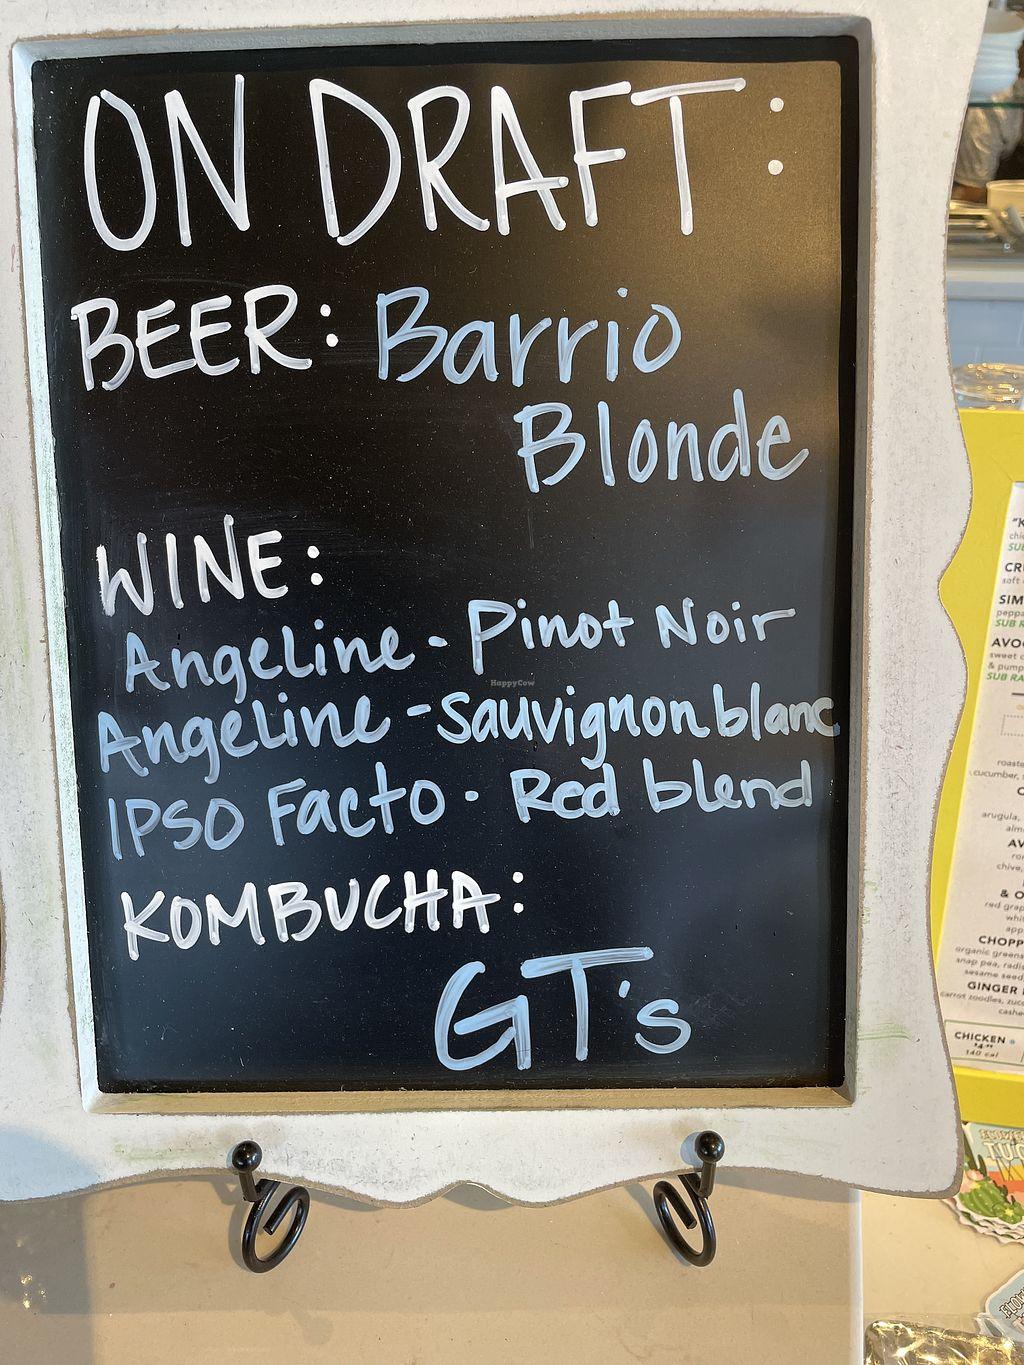 ON DRAFT:
BEER: Barrio
Blonde
WINE:
Angeline - Pinot Noir
Angeline - Sauvignon blanc
IPSO Facto - Red blend
KOMBUCHA:
GT's
HappyCow
SIM
SUB R
AVO
sweet c
& pump
SUB RA
roaste
cucumber,
arugula,
AV
chive,
& O
red grap
CHOPP
organic greens
snap pea, radi
sesame seed
GINGER
carrot zoodles, zuc
cashe
CHICKEN
140 cal